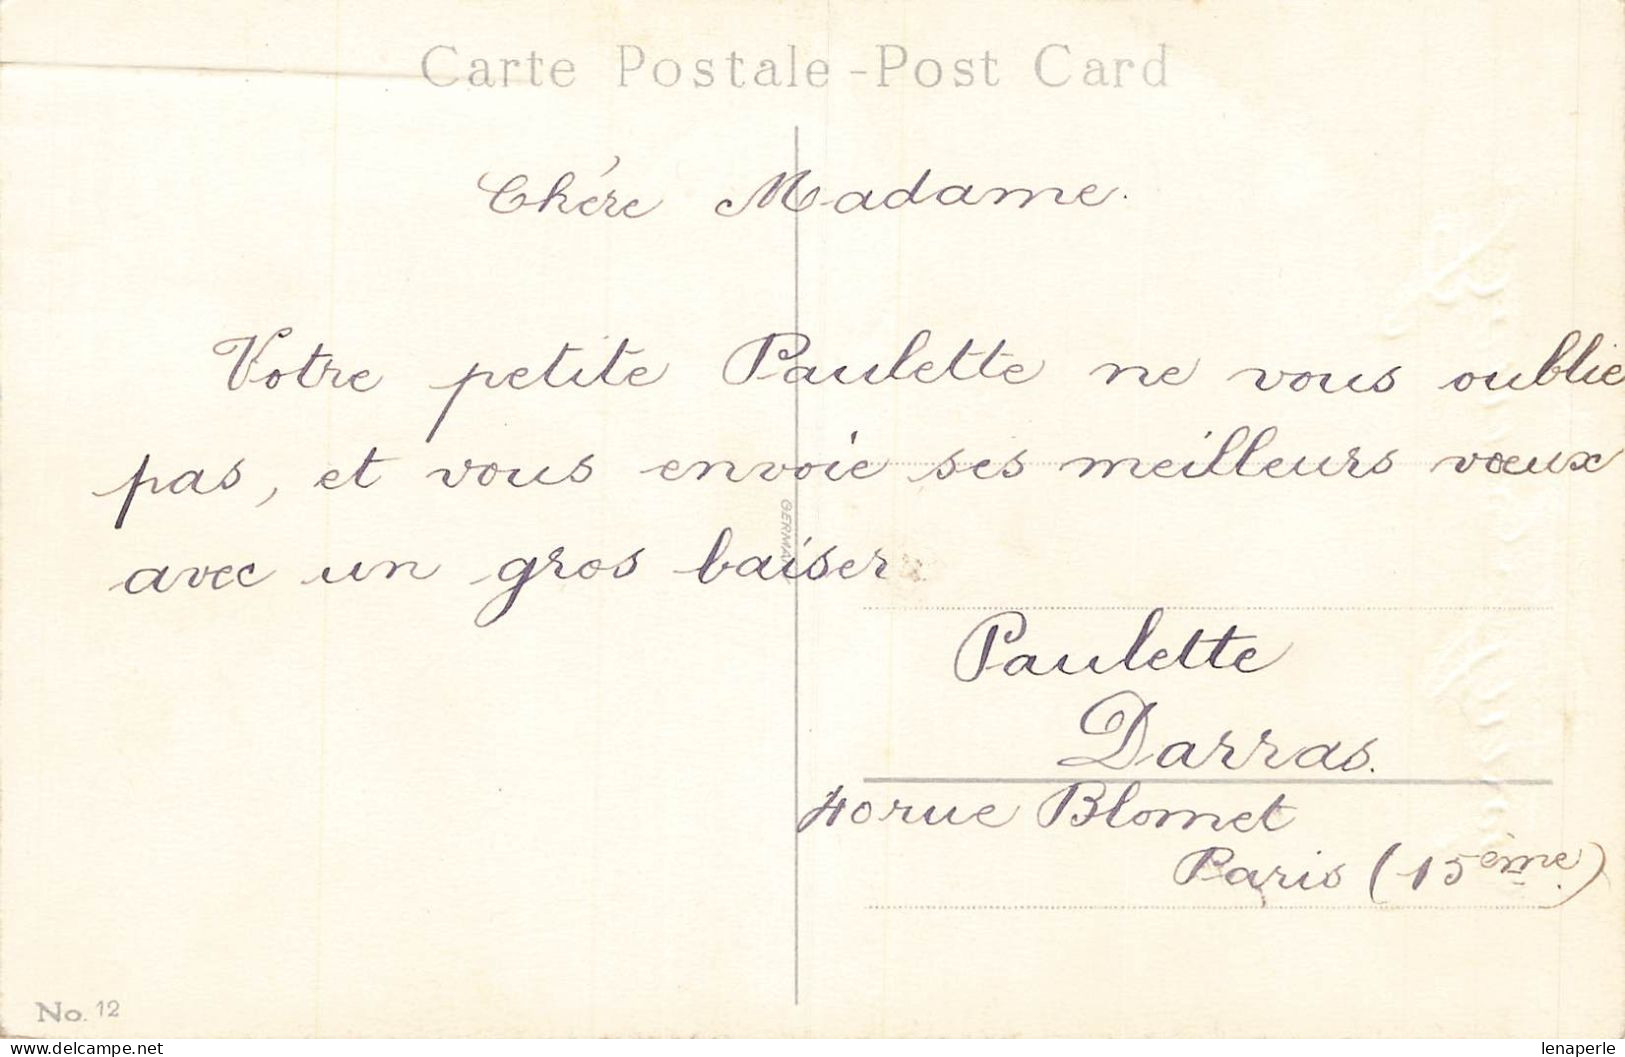 Carte Postale - Post Card
Chére Madame.
Votre petite Paulette ne vous oublie
pas, et vous envoie ses meilleurs vœux
avec un gros baiser
GERMANY
Paulette
Darras.
40 rue Blomet
Paris (15ème)
No. 12
www.delcampe.net
lenaperle